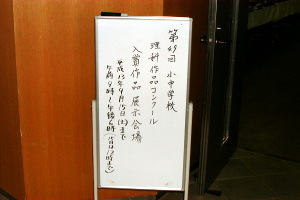 第49回 小中学校
理科作品コンクール
入賞作品 展示会場
平成13年9月15日(土)まで
午前9時~午後6時(15日は12時まで)